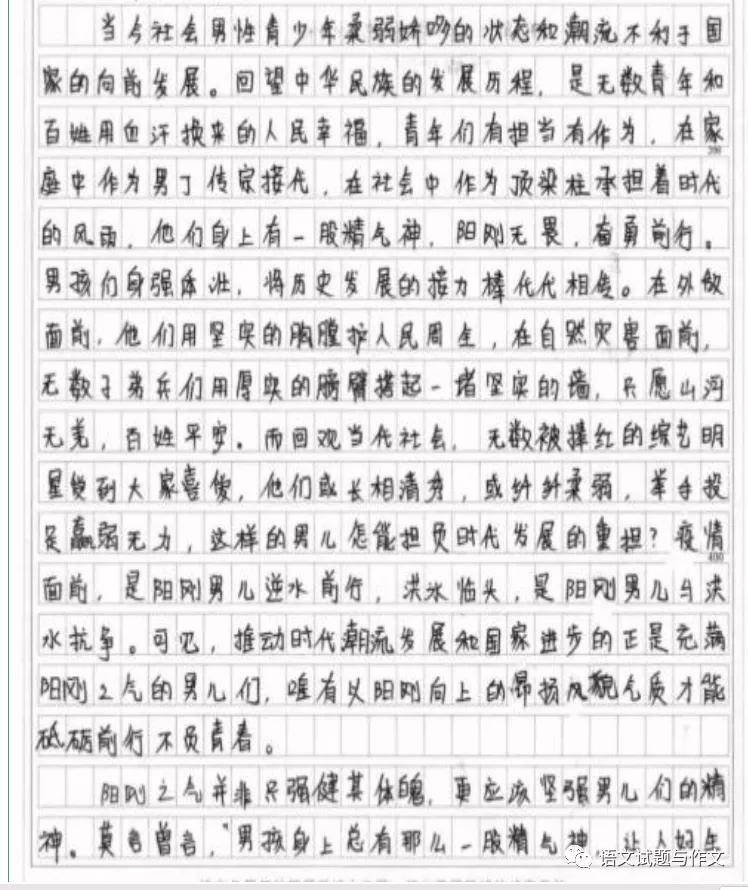 当今社会男性青少年柔弱娇哆的状态和潮流不利于国
家的向前发展。回望中华民族的发展历程，是无数青年和
百姓用血汗换来的人民幸福，青年们有担当有作为，在家
200
庭中作为男丁传宗接代，在社会中作为顶梁柱承担着时代
的风雨，他们身上有一股精气神，阳刚无畏，奋勇前行。
男孩们身强体壮，将历史发展的接力棒代代相传。在外敌
面前，他们用坚实的胸膛护人民周全，在自然灾害面前，
无数子弟兵们用厚实的臂搭起一堵坚实的墙，只愿山河
无恙，百姓平安。而回观当代社会，无数被捧红的综艺明
星受到大家喜爱，他们或长相清秀，或纤纤柔弱，举手投
足羸弱无力，这样的男儿怎能担负时代发展的重担？疫情
400
面前，是阳刚男儿逆水前行，洪水临头，是阳刚男儿与洪
水抗争。可见，推动时代潮流发展和国家进步的正是充满
阳刚之气的男儿们，唯有以阳刚向上的昂扬风貌气质才能
砥砺前行不负青春。
阳刚之气并非只强健其体魄，更应该坚强男儿们的精
神。莫言曾言，"男孩身上总有那么一股精气神，让人好生
语文试题与作文